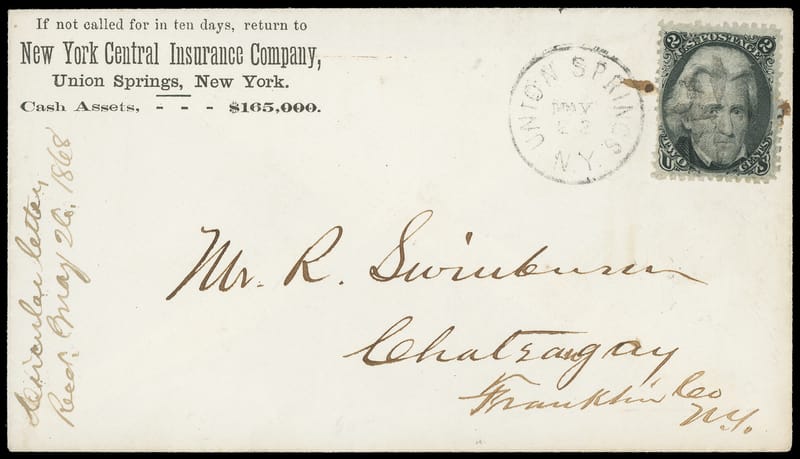 If not called for in ten days, return to
New York Central Insurance Company,
Union Springs, New York.
Cash Assets, - - - $165,000.
UNION SPRINGS
MAY
N.Y.
2 U.S. POSTAGE 2
TWO CENTS
Mr. R. Swinburn
Chatragay
Franklin Co
N.Y.
Circular letter,
Recd. May 26. 1868